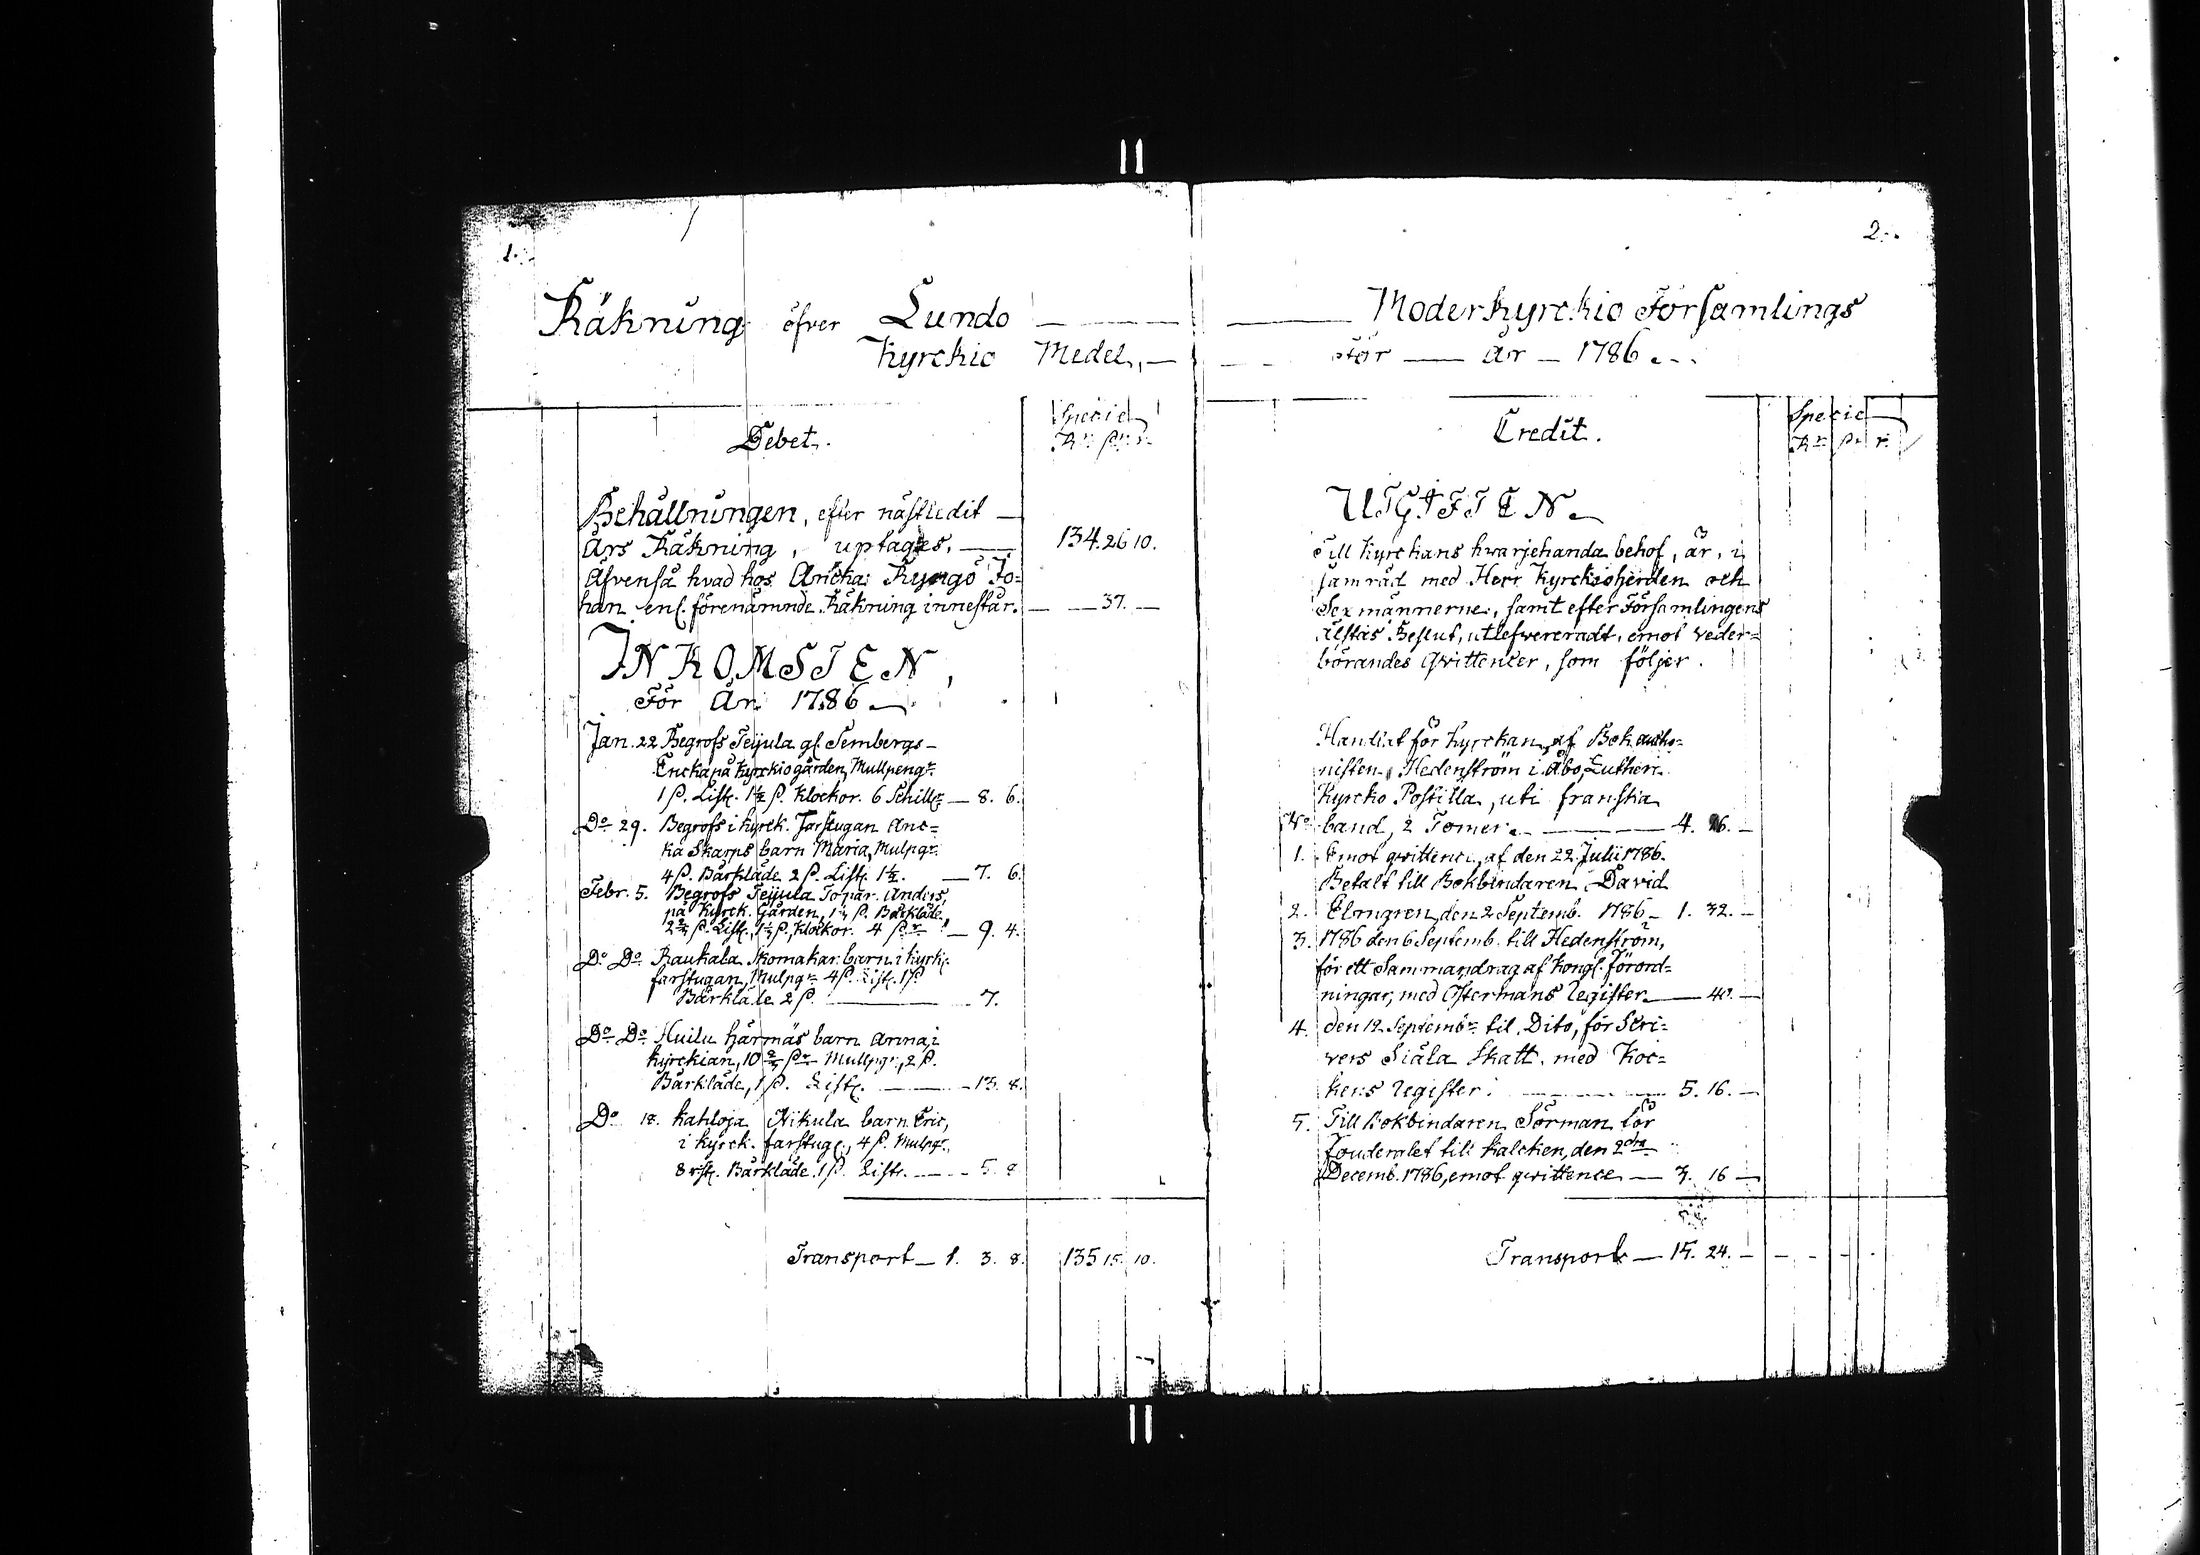 1.
Räkning öfver Lundo
Kyrckio Medel,
Debet.
Specie
Rr. sr. r.
Behållningen, efter nästledit
Års Räkning, uptages, 134. 26 10.
Äfvenså hvad hos Ancka Kyrgö Jo=
han enl. förenämnde Räkning innestår. 37.
INKOMSTEN,
För År 1786
Jan. 22 Begrofs Teijula gl. Tembergs
Ericka på Kyrckiogården, Mullpengr.
1 ß. Listr. 1½ ß. Klockor. 6 Schillr 8. 6.
Do 29. Begrofs i kyrck. farstugan Anc=
ka Skarps barn Maria, Mulpgr.
4 ß. Bårkläde 2 ß. Listr. 1½. 7. 6.
Febr. 5. Begrofs Teijula Topar. Anders,
på Kyrck. Gården, ß. Bårkläde
ß. Listr., ß., Klockor. 4 ßr 9. 4.
Do Do Raukala Skomakar. barn i kyrk.
farstugan, Mulpgr 4 ß. Listr. 1 ß
Bårkläde 2 ß. 7.
Do Do Huilu Härmäs barn Anna, i
kyrckian, 10 ßr Mullpgr., 2 ß.
Bårkläde, 1 ß. Listr. 13. 8.
Do 18. Kahloja Nikula barn Eric,
i kyrck. farstug., 4 ß. Mulpgr.,
8 rst. Bårkläde. 1 ß. Listr. 5. 8
Transport 1. 3. 8. 135 15. 10.
2.
Moderkyrckio Församlings
För år 1786
Credit.
Specie
Rr. sr. r.
UTGIFTEN
Till Kyrckans hvarjehanda behof, är, i
samråd med Herr Kyrckioherden och
Sexmännerne, samt efter Församlingens
älsta's Beslut, utlefwereradt, emot veder=
börandes Qvittencer, som följer.
Handlat för Kyrckan, af Bok
nisten Hedenström i Åbo, Lutheri
Kyrcko Postilla, uti franska
No band, 2 Tomer 4. 16.
1. Emot qvittence, af den 22 Julii 1786.
Betalt till Bokbindaren David
2. Elmgren, den 2 Septemb. 1786 1. 32.
3. 1786 den 6 Septemb. till Hedenström,
för ett Sammandrag af Kongl. Förord=
ningar, med Ostermans Register 40.
4. den 12 Septembr til Dito, för Scri=
vers Siäla Skatt. med Koc=
kens register. 5. 16.
5. Till Bokbindaren Sörman för
fouderalet till kalcken, den 2dra
Decemb. 1786, emot qvittence 3. 16
Transport 15. 24.